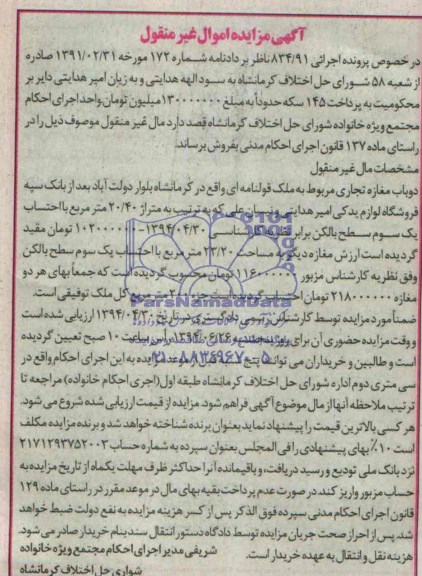 آگهی مزایده اموال غیر منقول
در خصوص پرونده اجرائی ۸۳۴/۹۱ ناظر بر دادنامه شماره ۱۷۲ مورخه ۱۳۹۱/۰۲/۳۱ صادره
از شعبه ۵۸ شورای حل اختلاف کرمانشاه به سود الهه هدایتی و به زیان امیر هدایتی دایر بر
محکومیت به پرداخت ۱۴۵ سکه حدوداً به مبلغ ۱۳۰۰۰۰۰۰۰ میلیون تومان واحد اجرای احکام
مجتمع ویژه خانواده شورای حل اختلاف کرمانشاه قصد دارد مال غیر منقول موصوف ذیل را در
راستای ماده ۱۳۷ قانون اجرای احکام مدنی بفروش برساند.
مشخصات مال غیر منقول
دوباب مغازه تجاری مربوط به ملک قولنامه ای واقع در کرمانشاه بلوار دولت آباد بعد از بانک سپه
فروشگاه لوازم یدکی امیر هدایتی و علی که به ترتیب به متراژ ۲۰/۴۰ متر مربع با احتساب
یک سوم سطح بالکن برابر نظریه کارشناسی ۱۳۹۴/۰۴/۳۰ - ۱۰۲۰۰۰۰۰۰ تومان مقید
گردیده است ارزش مغازه دیگر به مساحت ۲۳/۲۰ متر مربع با احتساب یک سوم سطح بالکن
وفق نظریه کارشناس مزبور ۱۱۶۰۰۰۰۰۰ تومان محسوب گردیده است که جمعاً بهای هر دو
مغازه ۲۱۸۰۰۰۰۰۰ تومان گردیده کل ملک توقیفی است.
ضمناً مورد مزایده توسط کارشناس رسمی دادگستری در تاریخ ۱۳۹۴/۰۴/۳۰ ارزیابی شده است
و وقت مزایده حضوری آن برای روز ۱۳۹۴/۰۶/۲۶ راس ساعت ۱۰ صبح تعیین گردیده
است و طالبین و خریداران می توانند پنج مزایده به این اجرای احکام واقع در
سی متری دوم اداره شورای حل اختلاف کرمانشاه طبقه اول (اجرای احکام خانواده) مراجعه تا
ترتیب ملاحظه آنها از مال موضوع آگهی فراهم شود. مزایده از قیمت ارزیابی شده شروع می شود.
هر کسی بالاترین قیمت را پیشنهاد نماید بعنوان برنده شناخته خواهد شد و برنده مزایده مکلف
است ۱۰٪ بهای پیشنهادی را فی المجلس بعنوان سپرده به شماره حساب ۲۱۷۱۲۹۳۷۵۲۰۰۳
نزد بانک ملی تودیع و رسید دریافت، و باقیمانده آنرا حداکثر ظرف مهلت یکماه از تاریخ مزایده به
حساب مزبور واریز کند. در صورت عدم پرداخت بقیه بهای مال در موعد مقرر در راستای ماده ۱۲۹
قانون اجرای احکام مدنی سپرده فوق الذکر پس از کسر هزینه مزایده به نفع دولت ضبط خواهد
شد. پس از احراز صحت جریان مزایده توسط دادگاه دستور انتقال سند بنام خریدار صادر می شود.
هزینه نقل و انتقال به عهده خریدار است. شریفی مدیر اجرای احکام مجتمع ویژه خانواده
شورای حل اختلاف کرمانشاه
ParsNamadData
۰۲۱-۸۸۳۴۹۶۷۰-۵